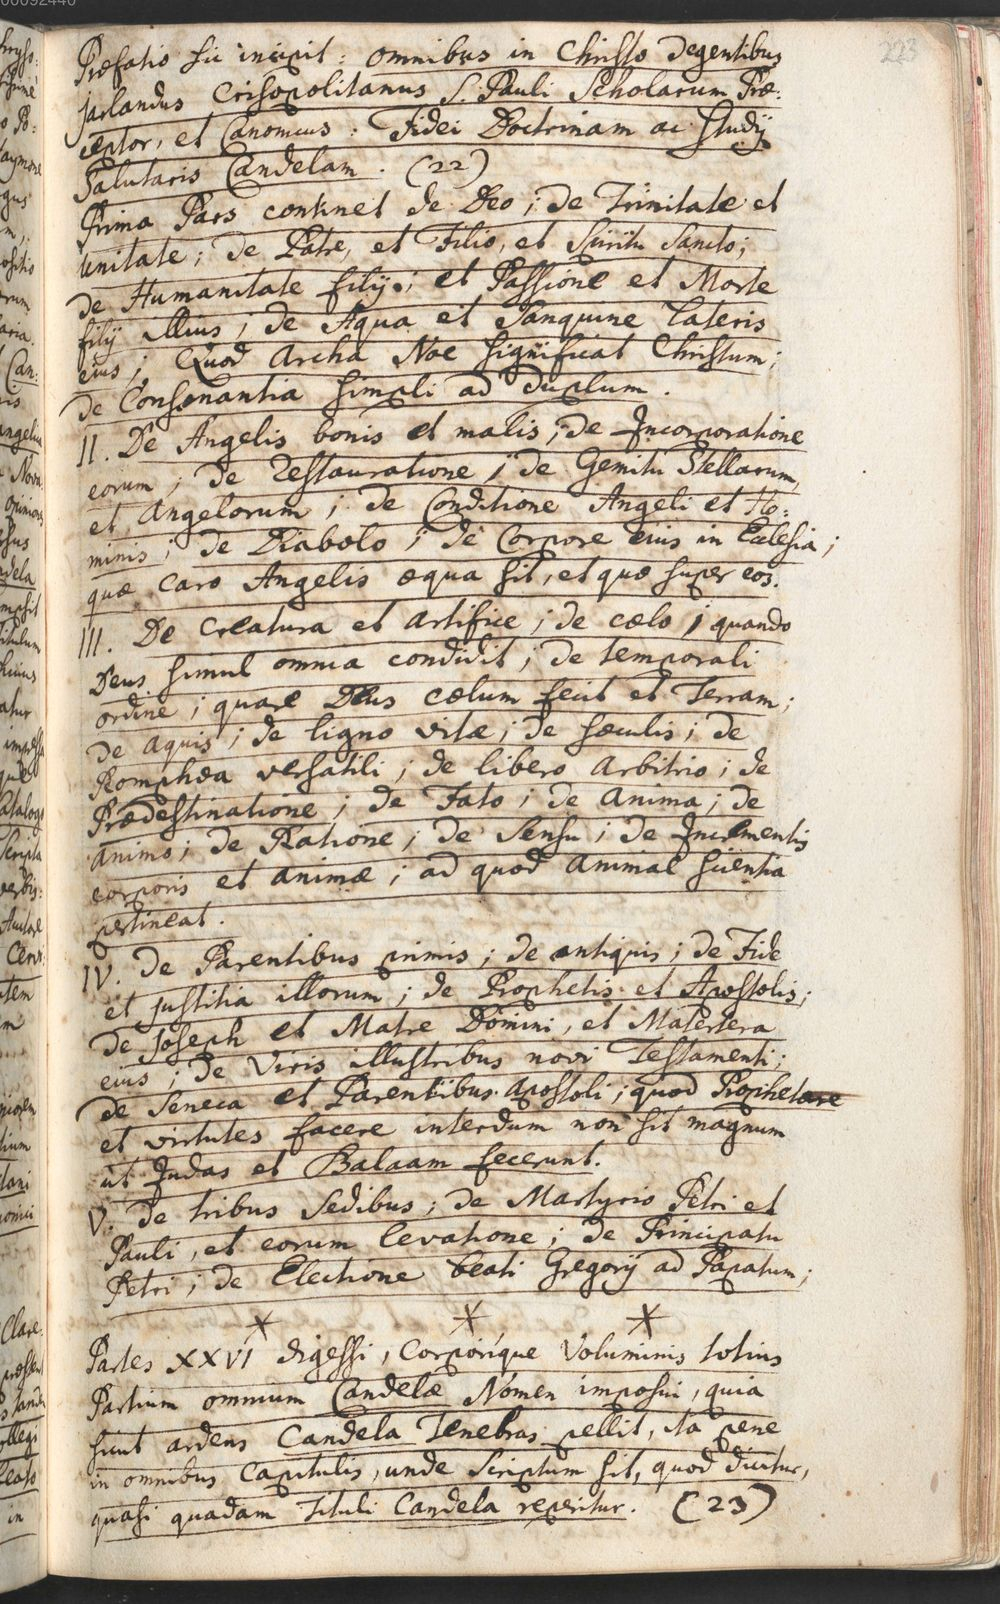 223
Præfatio sic incipit: omnibus in Christo degentibus
Jarlandus Crisopolitanus S. Pauli Scholarum Præ:
ceptor, et Canonicus: Fidei Doctrinam ac Studij
Salutaris Candelam. (22)
Prima Pars continet de Deo; de Trinitate et
Unitate; de Patre, et Filio, et Spiritu Sancto;
de Humanitate filij; et Passione et Morte
filij illius; de Aqua et Sanguine Lateris
eius; Quod Archa Noe significat Christum;
de Consonantia simpli ad duplum.
II. De Angelis bonis et malis; de Incorporatione
eorum; de restauratione; de Gemitu Stellarum,
et Angelorum; de Conditione Angeli et Ho:
minis; de Diabolo; de Corpore eius in Ecclesia;
quæ caro Angelis æqua sit, et quæ super eos.
III. De Creatura et artifice; de cælo; quando
Deus simul omnia condidit; de temporali
ordine; quare Deus cælum fecit et Terram;
de aquis; de ligno vitæ; de sæculis; de
Romphæa versatili; de libero Arbitrio; de
Prædestinatione; de Fato; de Anima; de
Animo; de Ratione; de Sensu; de Incrementis
corporis et animæ; ad quod Animal scientia
pertineat.
IV. De Parentibus primis; de antiquis; de Fide
et justitia illorum; de Prophetis et Apostolis;
de Joseph et Matre Domini, et Matertera
eius; de Viris illustribus novi Testamenti;
de Seneca et Parentibus Apostoli; quod Prophetare
et virtutes facere interdum non sit magnum
ut Judas et Balaam fecerunt.
V. De tribus Sedibus; de Martyrio Petri et
Pauli, et eorum levatione; de Principatu
Petri; de Electione beati Gregorij ad Papatum;
* * *
Partes XXVI digessi, Corporique Voluminis totius
Partium omnium Candelæ Nomen imposui, quia
sicut ardens Candela Tenebras pellit, ita pene
in omnibus Capitulis, unde scriptum sit, quod dicitur,
quasi quadam Tituli Candela reperitur. (23)